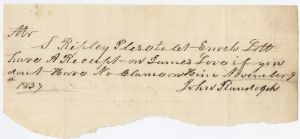 Mr
S Ripley Plesato let Enoch Lott
have A Receipt on James Love if you
dont Have No Clame on Him November 9
th 1837
John Randogh